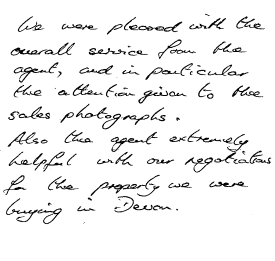 We were pleased with the
overall service from the
agent, and in particular
the attention given to the
sales photographs.
Also the agent extremely
helpful with our negotiations
for the property we were
buying in Devon.